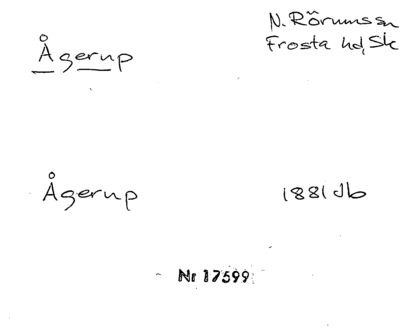 Ågerup
N. Rörums sn
Frosta hd, Sk
Ågerup
1881 Jb
Nr 17599